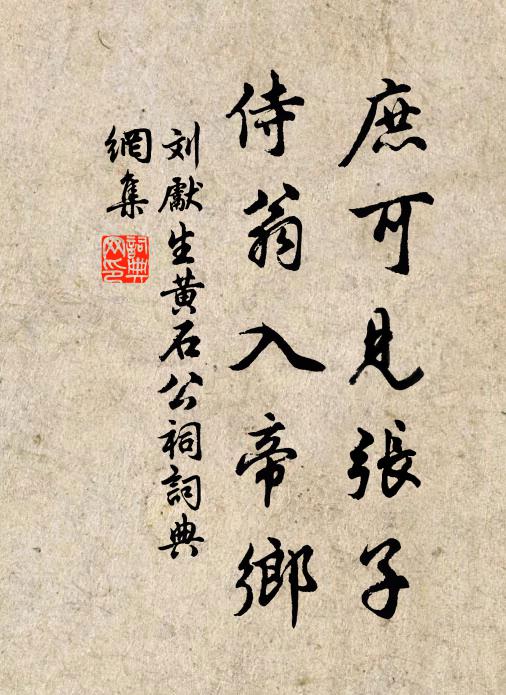 庶可見張子
侍翁入帝鄉
刘獻生黄石公祠詞典
網集
詞典网印